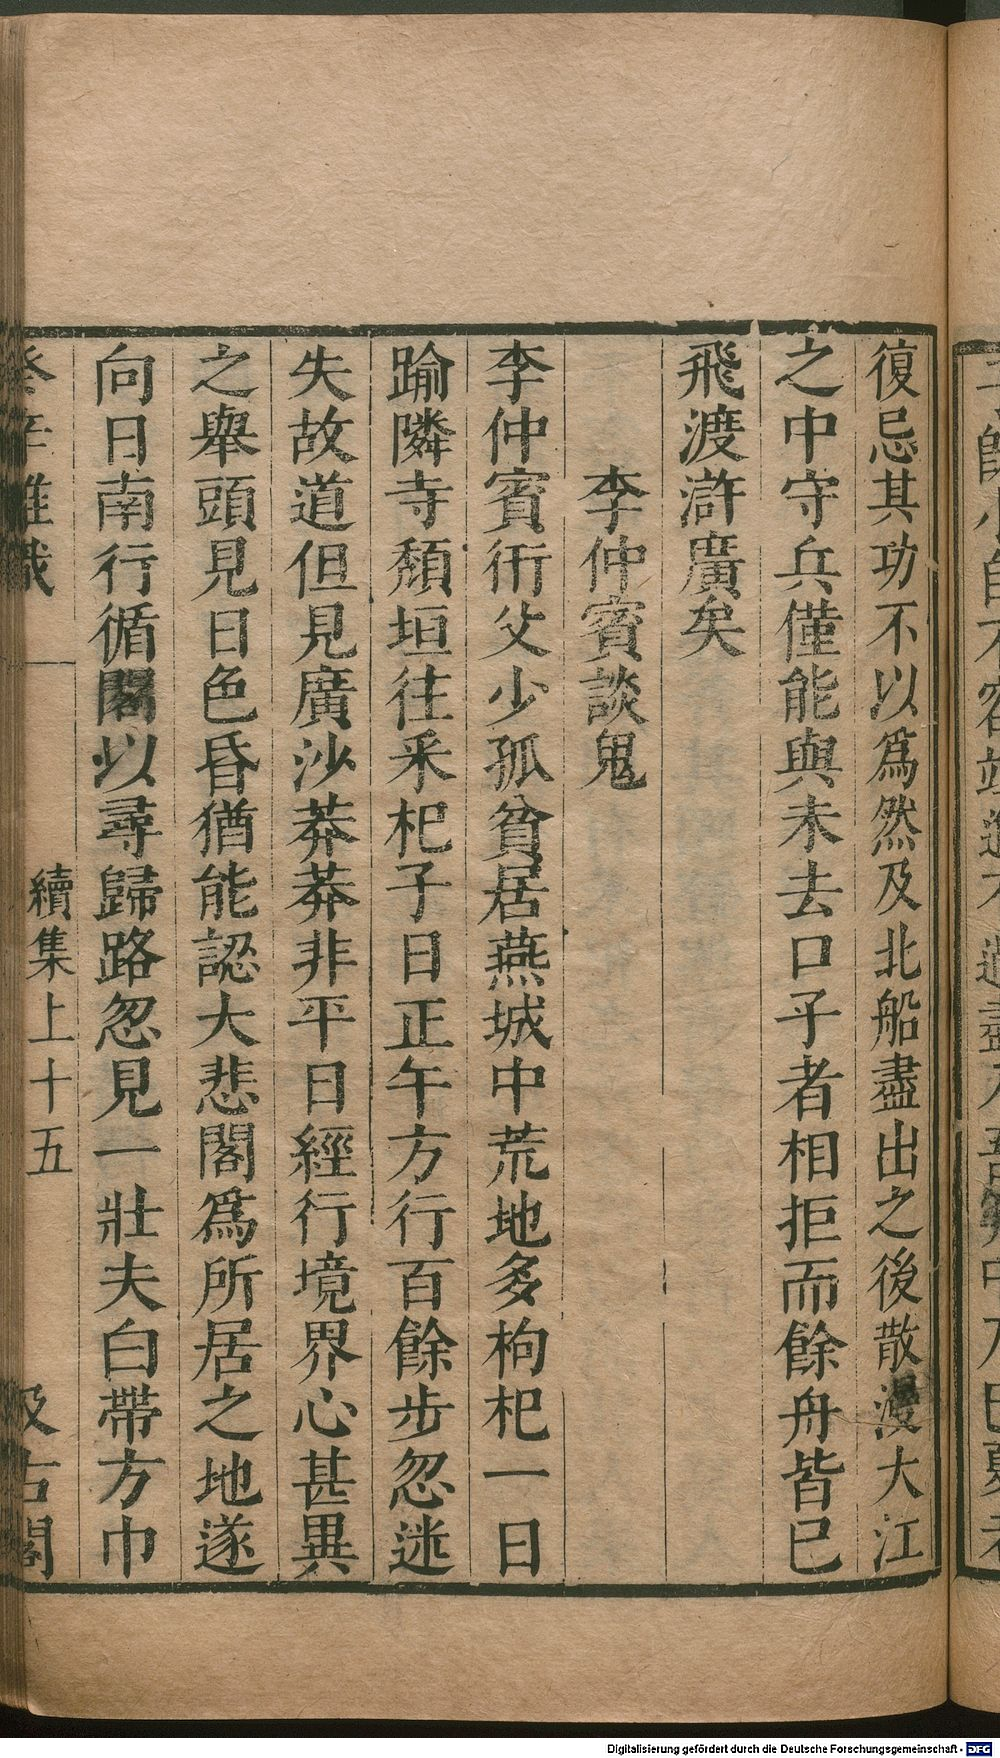 復忌其功不以爲然及北船盡出之後散漫大江
之中守兵僅能與未去口子者相拒而餘舟皆已
飛渡滸廣矣
李仲賓談鬼
李仲賓衎父少孤貧居燕城中荒地多枸杞一日
踰隣寺頹垣往采杞子日正午方行百餘步忽迷
失故道但見廣沙莽莽非平日經行境界心甚異
之舉頭見日色昏猶能認大悲閣爲所居之地遂
向日南行循閣以尋歸路忽見一壯夫白帶方巾
癸辛雜識
續集上十五
汲古閣
Digitalisierung gefördert durch die Deutsche Forschungsgemeinschaft - DFG